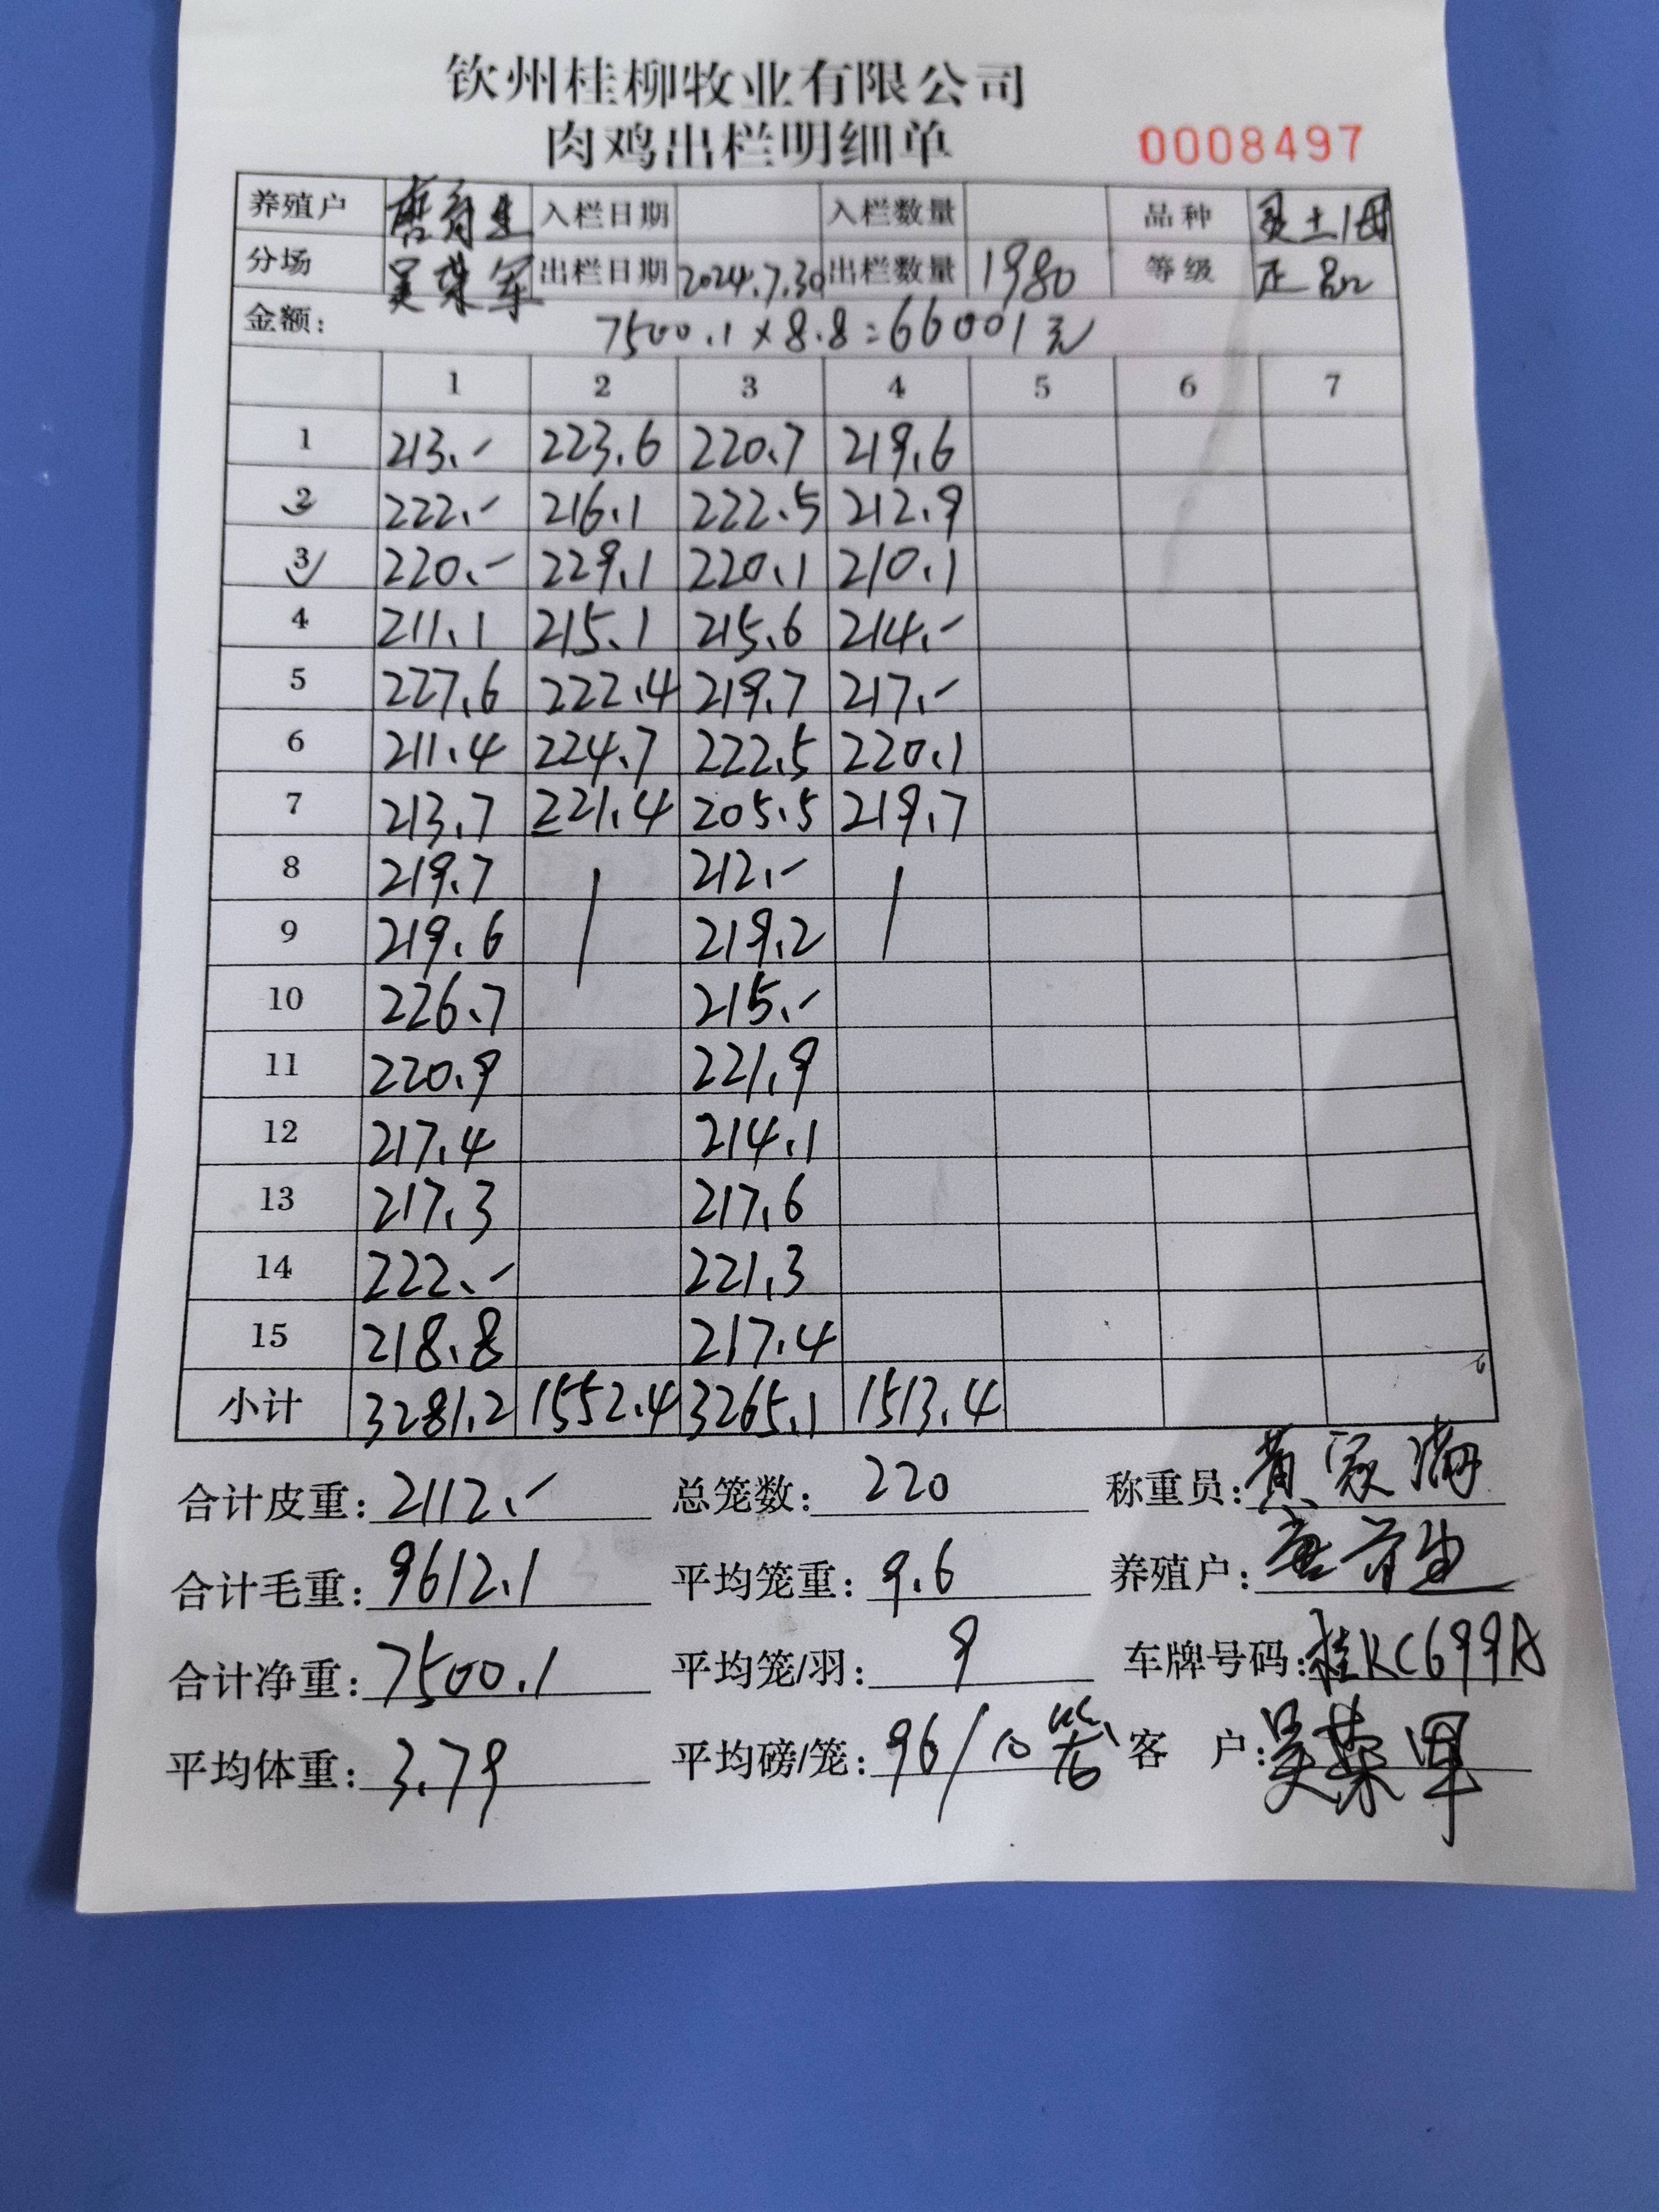 钦州桂柳牧业有限公司
肉鸡出栏明细单 0008497
养殖户 唐育生 入栏日期 入栏数量 品种 灵土1母
分场 吴荣军 出栏日期 2024.7.30 出栏数量 1980 等级 正品
金额: 7500.1×8.8=66001元
1 2 3 4 5 6 7
1 213.- 223.6 220.7 219.6
2 222.- 216.1 222.5 212.9
3 220.- 229.1 220.1 210.1
4 211.1 215.1 215.6 214.-
5 227.6 222.4 219.7 217.-
6 211.4 224.7 222.5 220.1
7 213.7 221.4 205.5 219.7
8 219.7 212.-
9 219.6 219.2
10 226.7 215.-
11 220.9 221.9
12 217.4 214.1
13 217.3 217.6
14 222.- 221.3
15 218.8 217.4
小计 3281.2 1552.4 3265.1 1513.4
合计皮重: 2112.- 总笼数: 220 称重员: 黄家满
合计毛重: 9612.1 平均笼重: 9.6 养殖户:
合计净重: 7500.1 平均笼/羽: 9 车牌号码: 桂KC699A
平均体重: 3.79 平均磅/笼: 96/10 客 户: 吴荣军